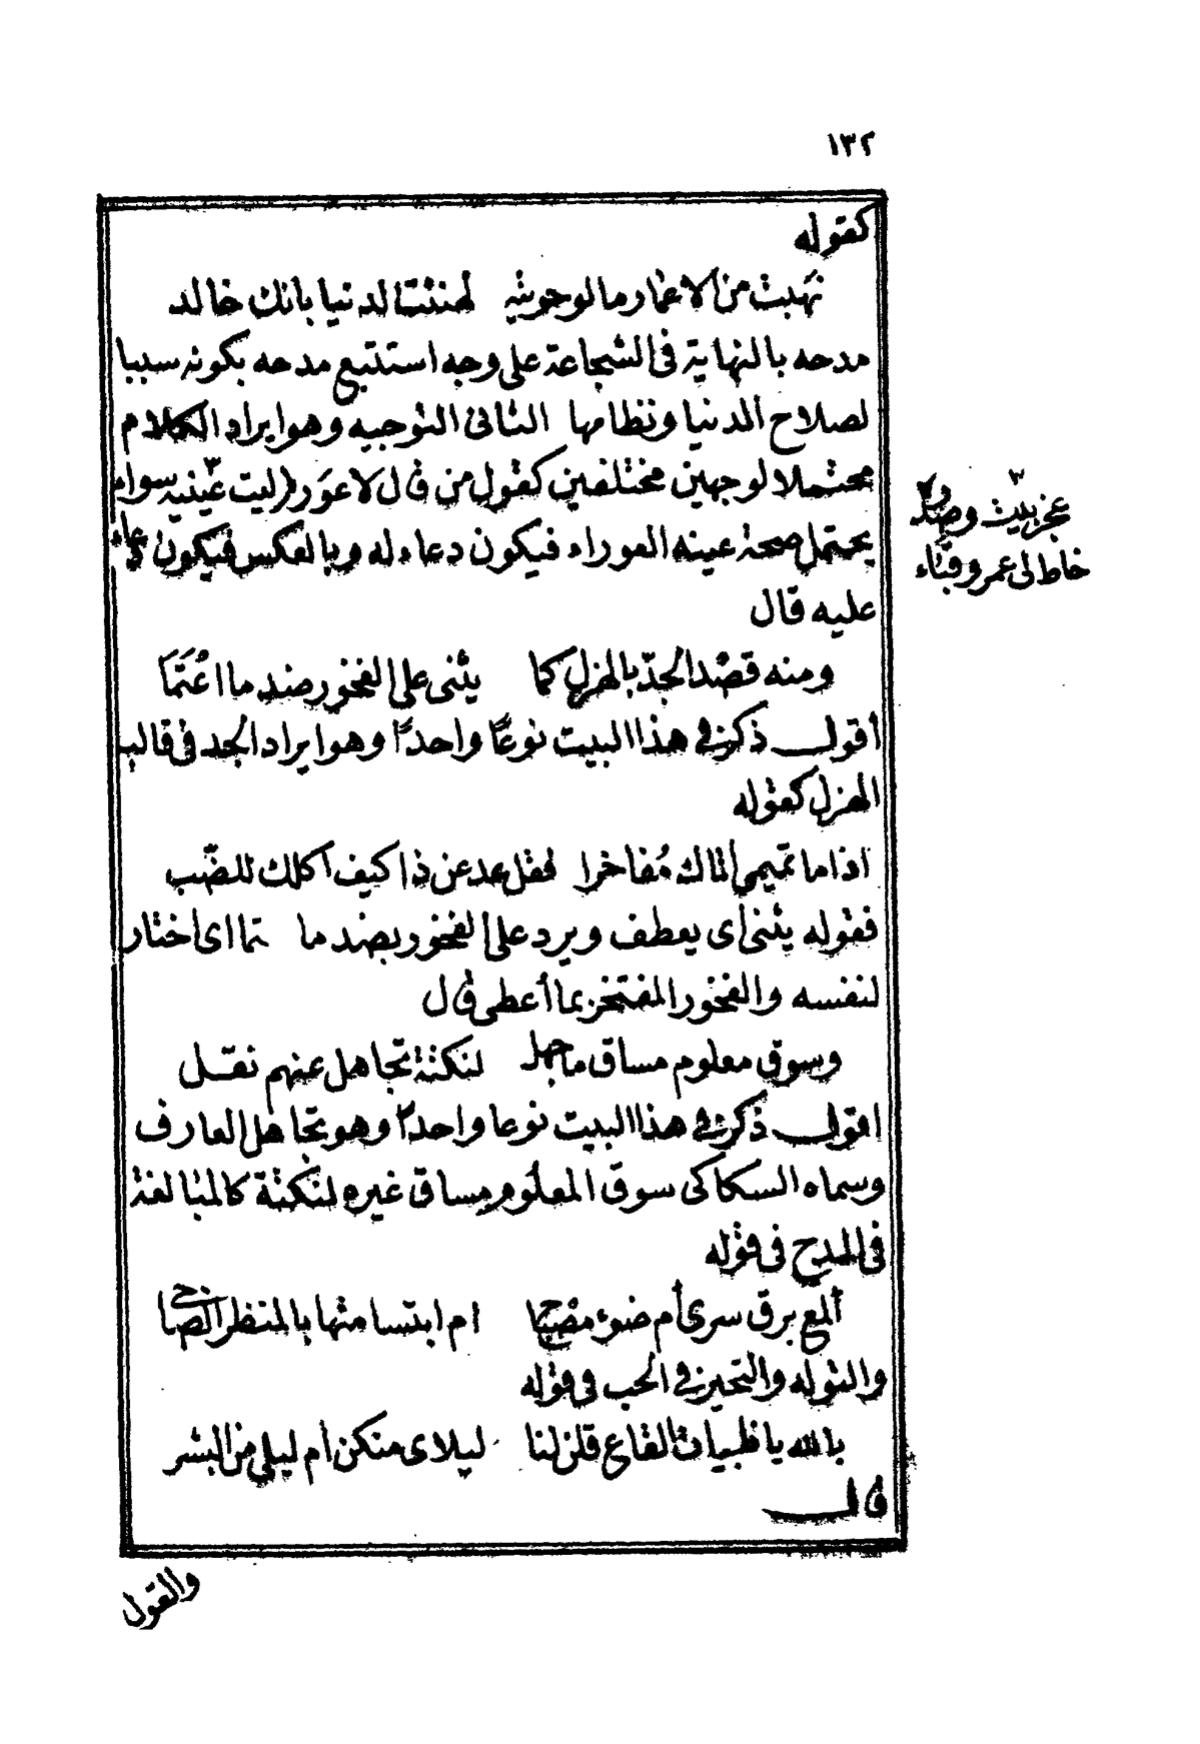 ١٣٢
كقوله
نهبت من الاعمار ما لو حويته   لهنئت الدنيا بانك خالد
مدحه بالنهاية فى الشجاعة على وجه استتبع مدحه بكونه سببا
لصلاح الدنيا ونظامها الثانى التوجيه وهو ايراد الكلام
محتملا لوجهين مختلفين كقول من قال لاعور (ليت عينيه سواء
يحتمل صحة عينه العوراء فيكون دعاء له وبالعكس فيكون دعاء
عليه قال
ومنه قصْد الجدّ بالهزل كما   يثنى على الفخور ضد ما اعْتَمَا
أقول ذكر فى هذا البيت نوعًا واحدًا وهو ايراد الجد فى قالب
الهزل كقوله
اذا ما تميمى أتاك مُفاخرا   فقل عد عن ذا كيف أكلك للضّب
فقوله يثنى أى يعطف ويرد على الفخور بضد ما تما اى اختار
لنفسه والفخور المفتخر بما أعطى قال
وسوق معلوم مساق ما جهل   لنكتة تجاهل عنهم نقل
اقول ذكر فى هذا البيت نوعا واحدًا وهو تجاهل العارف
وسماه السكاكى سوق المعلوم مساق غيره لنكتة كالمبالغة
فى المدح فى قوله
ألمع برق سرى أم ضوء مصْباح   ام ابتسامتها بالمنظر الضاحى
والتوله والتحير فى الحب فى قوله
بالله يا ظبيات القاع قلن لنا   ليلاى منكن أم ليلى من البشر
قال
والقول
٣
عجز بيت وصدره
خاط لى عمرو قباء